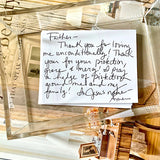 Father—
Thank you for loving
me unconditionally! Thank
you for your protection,
grace & mercy! I pray
a hedge of protection
your me and my
family! In Jesus name
Amen